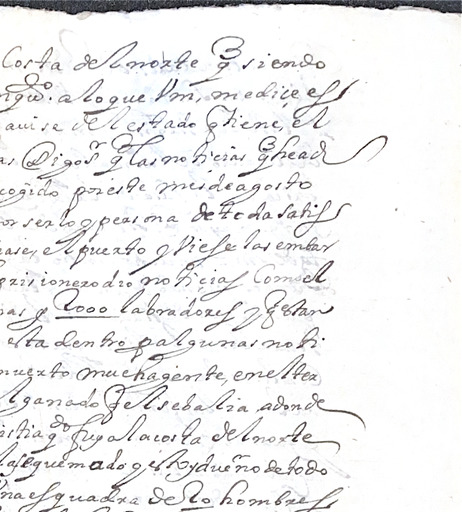 Costa del norte q siendo
a lo que Vm, me diçe es
avise del estado q tiene, el
as Digo sr q las noticias q he ad
cogido por este mes de agosto
or ser lo q persona de toda satis
ase, el puerto q Viese las embar
prisionero dio noticias Como el
nas q 2000 labradores y q estan
esta dentro p algunas noti
muerto mucha gente, en el ter
l ganado q el se balia adonde
istia q do fuy a la costa del norte
la se quemado q es Rey dueño de todo
Vna esquadra de 20 hombres